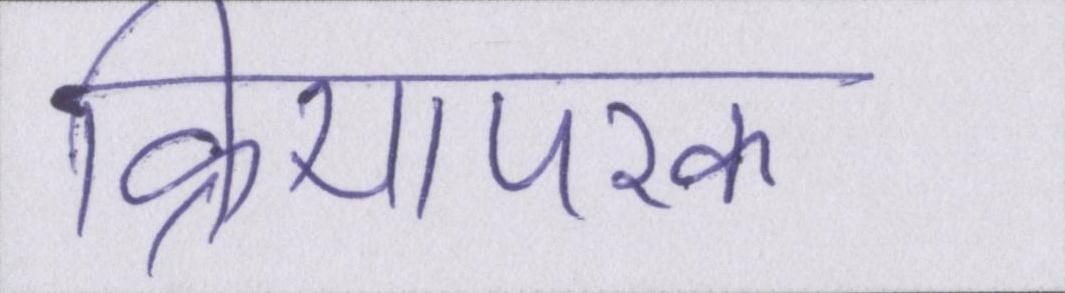 क्रियापरक